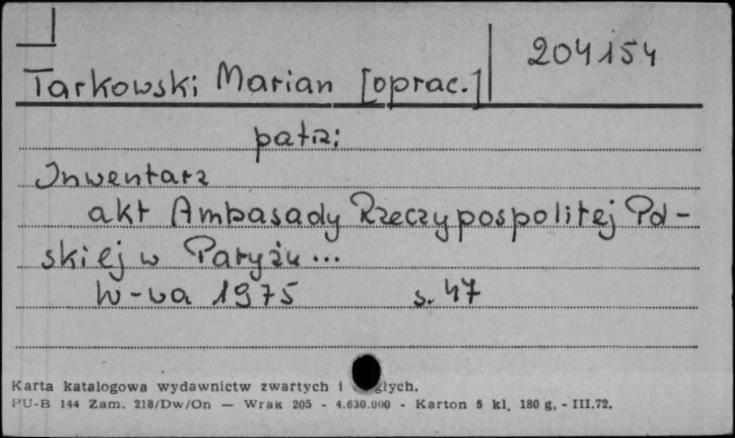 204154
Tarkowski Marian [oprac.]
patrz:
Inwentarz
akt Ambasady Rzeczypospolitej Pol-
skiej w Paryżu...
W-wa 1975 s. 47
Karta katalogowa wydawnictw zwartych i
PU-B 144 Zam. 218/Dw/On — Wrak 205 - 4.630.000 - Karton 5 kl. 180 g. - III.72.